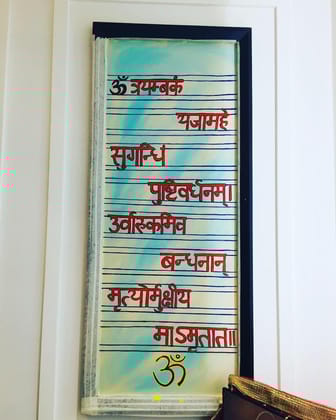 ॐ त्रयम्बकं
यजामहे
सुगन्धिं
पुष्टिवर्धनम्।
उर्वारुकमिव
बन्धनान्
मृत्योर्मुक्षीय
माऽमृतात॥
ॐ